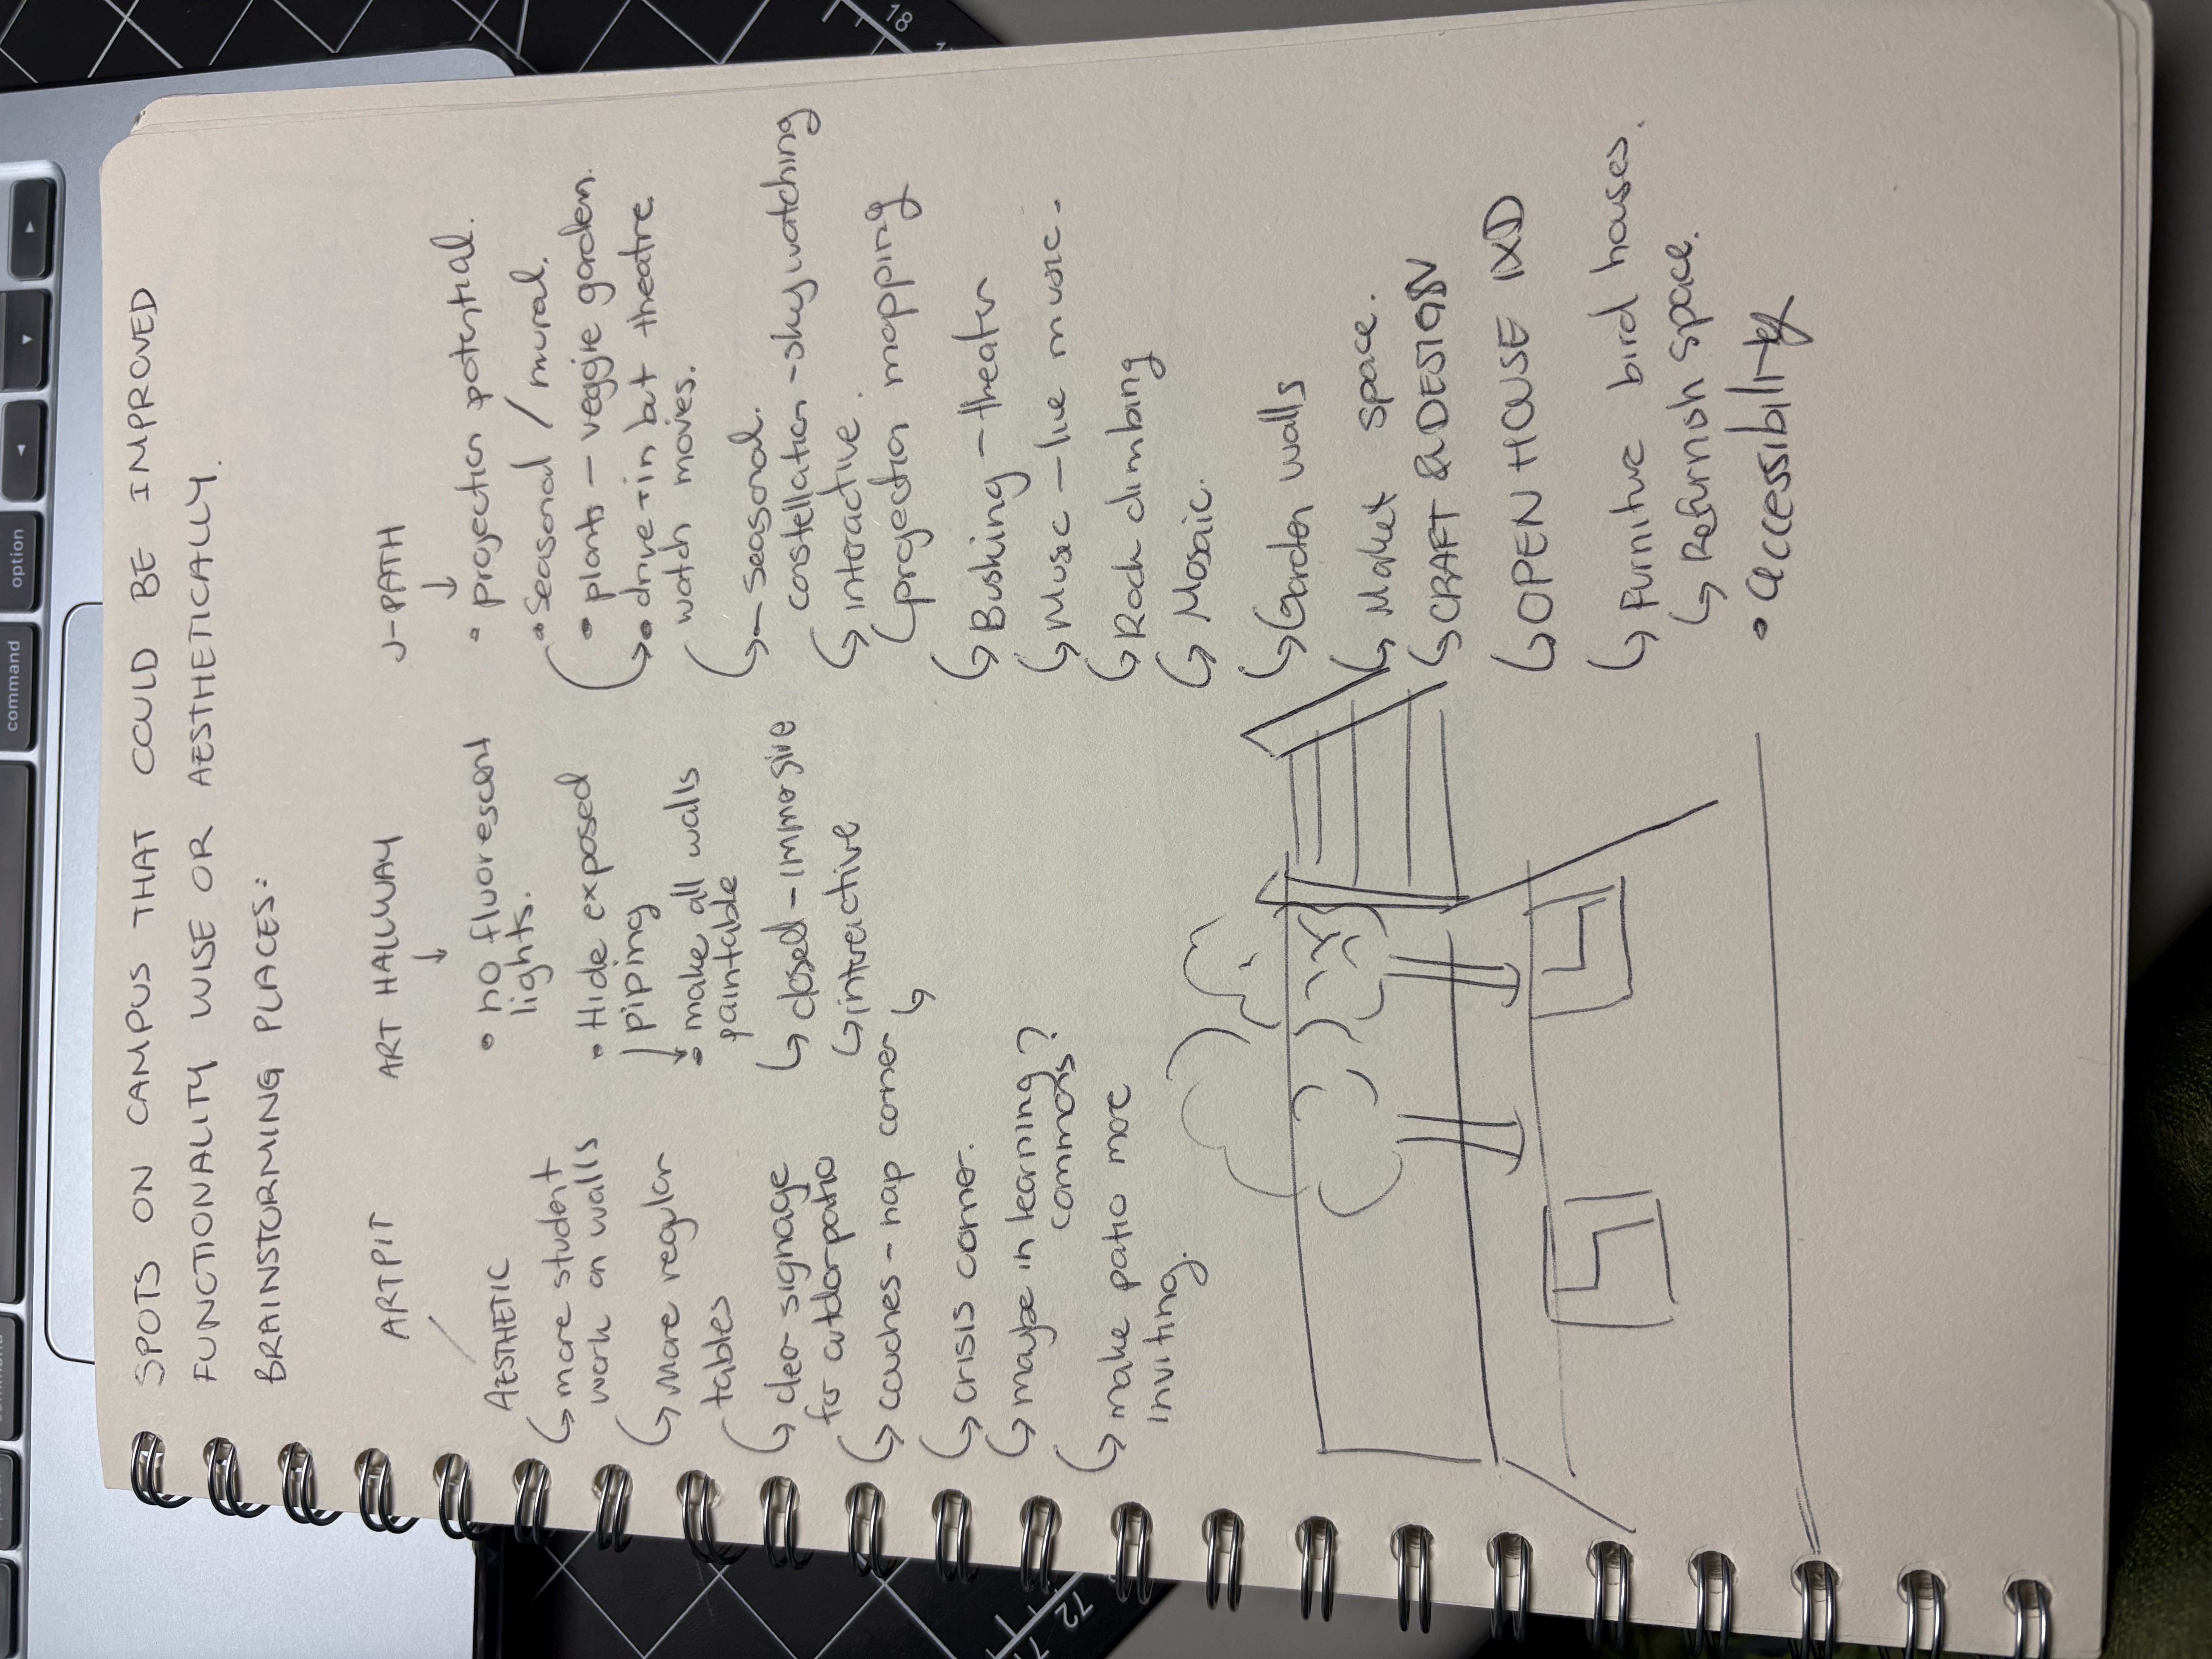 SPOTS ON CAMPUS THAT COULD BE IMPROVED
FUNCTIONALITY WISE OR AESTHETICALLY.
BRAINSTORMING PLACES:
ARTPIT
AESTHETIC
↳ more student
work on walls
↳ More regular
tables
↳ clear signage
for outdor-patio
↳ couches - nap corner ↳
↳ crisis corner.
↳ maybe in learning?
commons
↳ make patio more
inviting.
ART HALLWAY
↓
• no fluorescent
lights.
• Hide exposed
piping
• make all walls
paintable
↳ closed - immersive
↳ interactive
J-PATH
↓
• projection potential.
• Seasonal / mural.
• plants - veggie garden.
↳ • drive-in but theatre
watch movies.
↳ - seasonal.
constellation - sky watching
↳ interactive.
projection mapping
↳ Busking - theater
↳ Music - live music.
↳ Rock climbing
↳ Mosaic.
↳ Garden walls
↳ Market space.
↳ CRAFT & DESIGN
↳ OPEN HOUSE IXD
↳ Furniture bird houses.
↳ Refurnish space.
• accessibility
command
option
command
◄
▼
▲
18
72
71